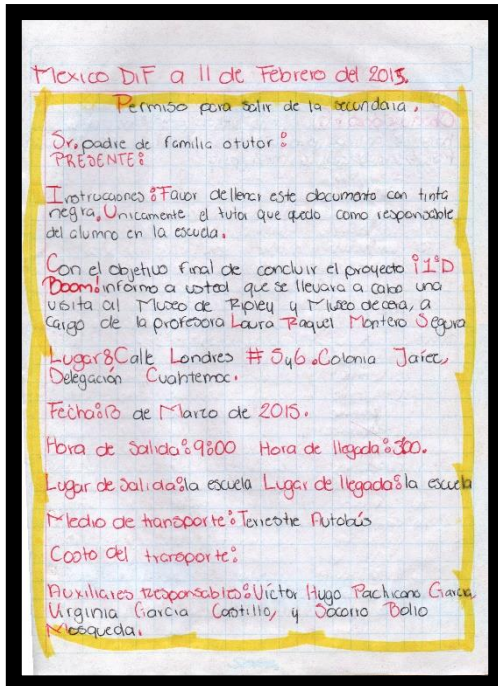 Mexico D.F a 11 de Febrero del 2015.
Permiso para salir de la secundaria.
Sr. padre de familia o tutor:
PRESENTE:
Instrucciones: Favor de llenar este documento con tinta
negra. Unicamente el tutor que quedo como responsable
del alumno en la escuela.
Con el objetivo final de concluir el proyecto ¡1°D
Boom! informo a usted que se llevara a cabo una
visita al Museo de Ripley y Museo de cera, a
cargo de la profesora Laura Raquel Montero Segura
Lugar: Calle Londres # 5 y 6. Colonia
Delegación Cuahtemoc.
Fecha: 13 de Marzo de 2015.
Hora de Salida: 9:00 Hora de llegada: 3:00.
Lugar de Salida: la escuela Lugar de llegada: la escuela
Medio de transporte: Terrestre Autobús
Costo del transporte:
Auxiliares Responsables: Víctor Hugo Pachicano Garcia,
Virginia Garcia Castillo, y Socorro Bolio
Mosqueda.